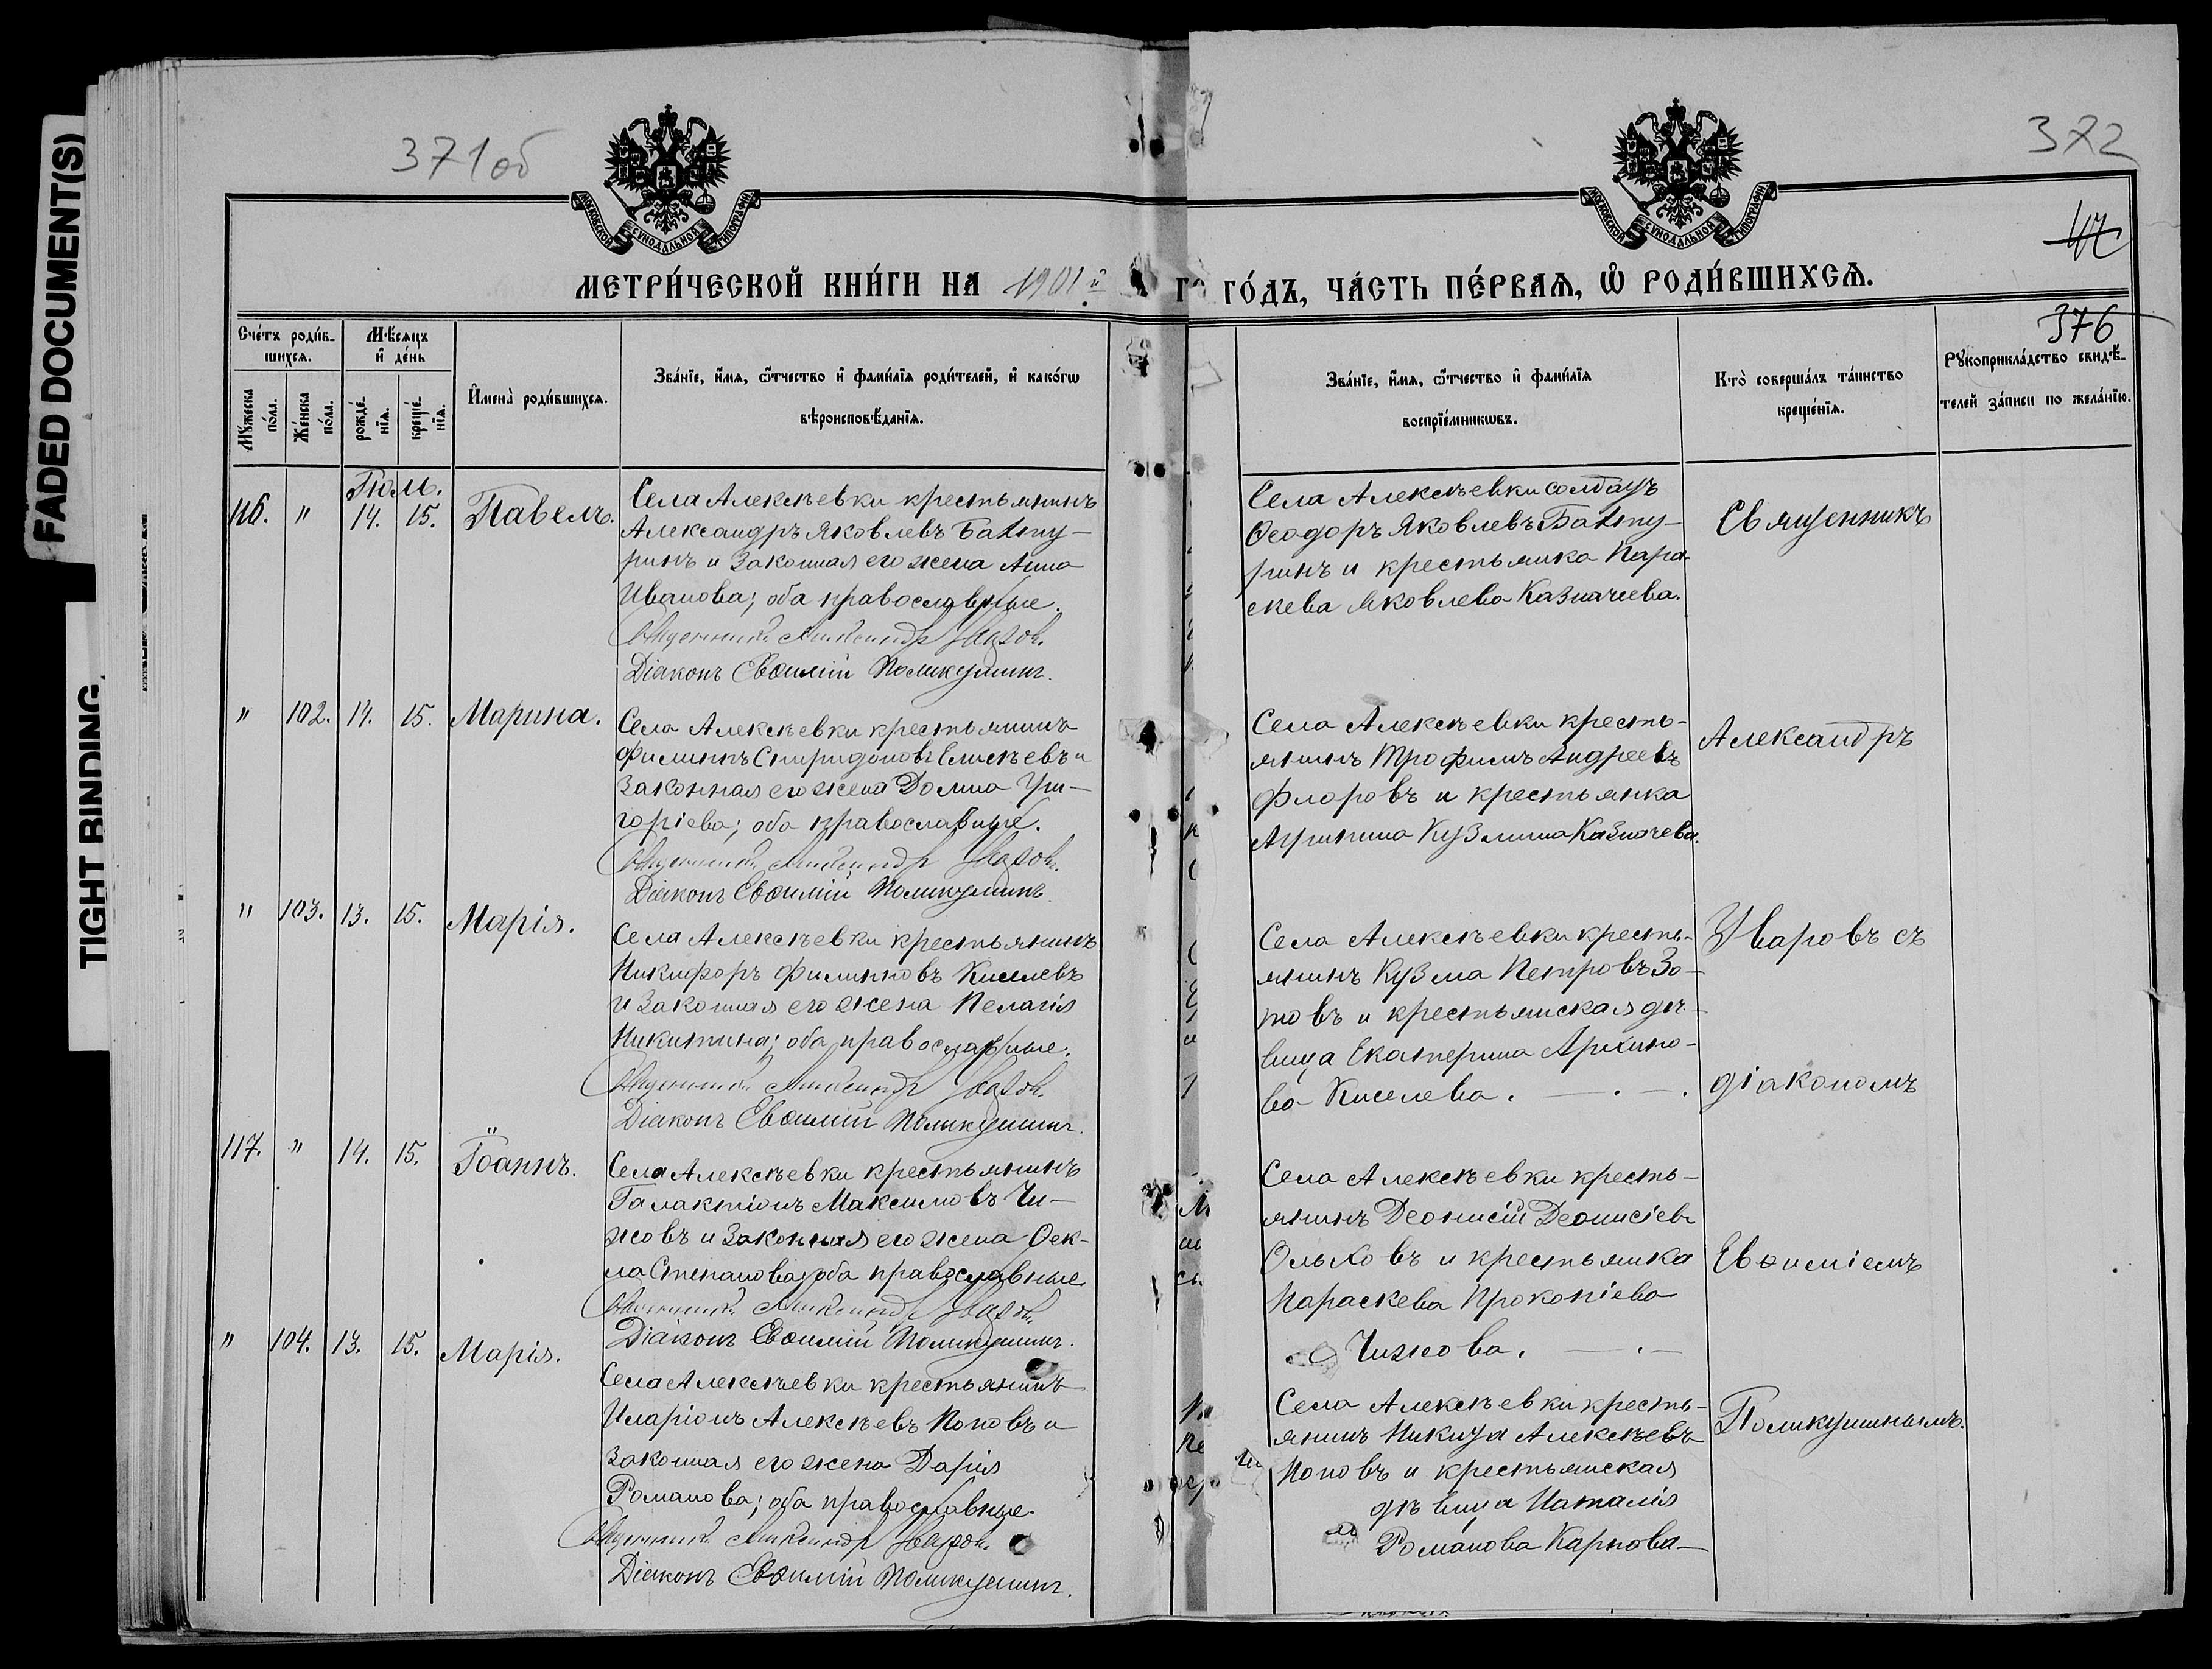 FADED DOCUMENT(S)
TIGHT BINDING
371об
372
МОСКОВСКОЙ СѴНОДАЛЬНОЙ ТИПОГРАФІИ
МОСКОВСКОЙ СѴНОДАЛЬНОЙ ТИПОГРАФІИ
МЕТРИ́ЧЕСКОЙ КНИ́ГИ НА 1901й ГО́ДЪ, ЧА́СТЬ ПЕ́РВАѦ, Ѡ҆ РОДИ́ВШИХСѦ.
376
Сче́тъ роди́в-
шихсѧ.
Мѣ́сѧцъ
и҆ де́нь
Мꙋ́жеска
по́ла.
Же́нска
по́ла.
рожде́-
нїѧ.
креще́-
нїѧ.
И҆мена̀ роди́вшихсѧ.
Зва́нїе, и҆́мѧ, ѻ҆́тчество и҆ фами́лїѧ роди́телей, и҆ како́гѡ
вѣроисповѣ́данїѧ.
Зва́нїе, и҆́мѧ, ѻ҆́тчество и҆ фами́лїѧ
воспрїе́мникѡвъ.
Кто̀ соверша́лъ та́инство
креще́нїѧ.
Рꙋкоприкла́дство свидѣ́-
телей за́писи по жела́нїю.
Іюли.
116. " 14. 15. Павелъ.
Села Алексѣевки крестьянинъ
Александръ Яковлевъ Бахту-
ринъ и законная его жена Анна
Иванова; оба православные.
Священникъ Александръ Уваровъ.
Діаконъ Евѳимій Поликушинъ.
Села Алексѣевки солдатъ
Ѳеодоръ Яковлевъ Бахту-
ринъ и крестьянка Пара-
скева Яковлева Казначеева.
Священникъ
" 102. 14. 15. Марина.
Села Алексѣевки крестьянинъ
Филиппъ Спиридоновъ Елисѣевъ и
законная его жена Домна Гри-
горіева; оба православные.
Священникъ Александръ Уваровъ.
Діаконъ Евѳимій Поликушинъ.
Села Алексѣевки кресть-
янинъ Трофимъ Андреевъ
Флоровъ и крестьянка
Агрипина Кузмина Казначева.
Александръ
" 103. 13. 15. Марія.
Села Алексѣевки крестьянинъ
Никифоръ Филипповъ Киселевъ
и законная его жена Пелагія
Никитина; оба православные.
Священникъ Александръ Уваровъ.
Діаконъ Евѳимій Поликушинъ.
Села Алексѣевки кресть-
янинъ Кузма Петровъ Зо-
товъ и крестьянская дѣ-
вица Екатерина Архипо-
ва Киселева.
Уваровъ съ
діакономъ
117. " 14. 15. Іоаннъ.
Села Алексѣевки крестьянинъ
Галактіонъ Максимовъ Чи-
жовъ и законная его жена Ѳек-
ла Степанова; оба православные
Священникъ Александръ Уваровъ.
Діаконъ Евѳимій Поликушинъ.
Села Алексѣевки кресть-
янинъ Деонисій Деонисіевъ
Ольховъ и крестьянка
Параскева Прокопіева
Чижова.
Евѳиміемъ
" 104. 13. 15. Марія.
Села Алексѣевки крестьянинъ
Иларіонъ Алексѣевъ Поповъ и
законная его жена Дарія
Романова; оба православные.
Священникъ Александръ Уваровъ.
Діаконъ Евѳимій Поликушинъ.
Села Алексѣевки кресть-
янинъ Никита Алексѣевъ
Поповъ и крестьянская
дѣвица Наталія
Романова Карпова
Поликушинымъ.